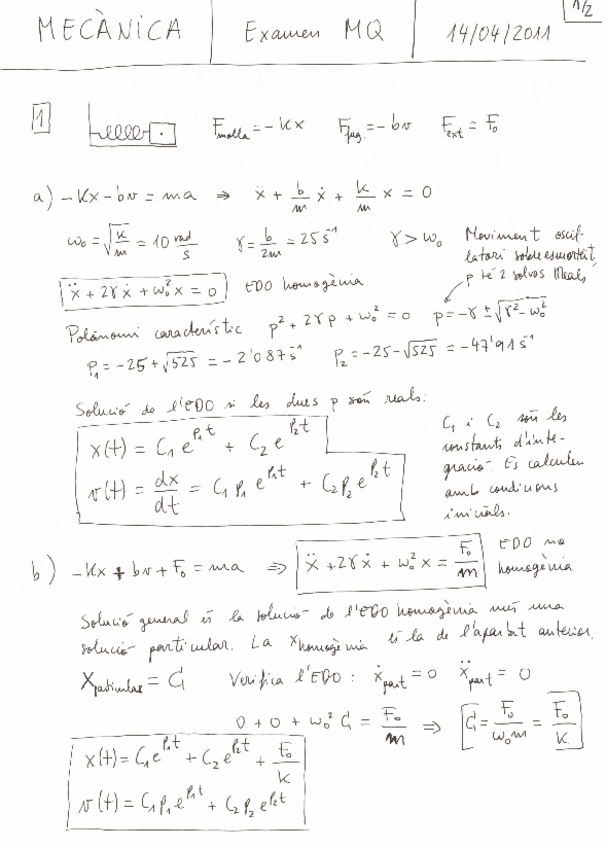 1/2
MECÀNICA | Examen MQ | 14/04/2011
1 F_molla = -Kx F_fug. = -bv F_ext = F₀
a) -Kx - bv = ma ⇒ ẍ + b/m ẋ + k/m x = 0
ω₀ = √(k/m) = 10 rad/s γ = b/2m = 25 s⁻¹ γ > ω₀ Moviment oscil-
latori sobreesmorteït,
p té 2 solucs Reals,
ẍ + 2γẋ + ω₀²x = 0 EDO homogènia
Polinomi característic p² + 2γp + ω₀² = 0 p = -γ ± √(γ² - ω₀²)
p₁ = -25 + √525 = -2'087 s⁻¹ p₂ = -25 - √525 = -47'91 s⁻¹
Solució de l'EDO si les dues p són reals:
x(t) = C₁ e^(p₁t) + C₂ e^(p₂t)
v(t) = dx/dt = C₁ p₁ e^(p₁t) + C₂ p₂ e^(p₂t)
C₁ i C₂ són les
constants d'inte-
gració. Es calculen
amb condicions
inicials.
b) -Kx + bv + F₀ = ma ⇒ ẍ + 2γẋ + ω₀²x = F₀/m EDO no
homogènia
Solució general és la solució de l'EDO homogènia més una
solució particular. La x_homogènia és la de l'apartat anterior.
X_particular = C Verifica l'EDO: ẋ_part = 0 ẍ_part = 0
0 + 0 + ω₀² C = F₀/m ⇒ C = F₀/ω₀m = F₀/k
x(t) = C₁e^(p₁t) + C₂e^(p₂t) + F₀/k
v(t) = C₁p₁e^(p₁t) + C₂p₂e^(p₂t)